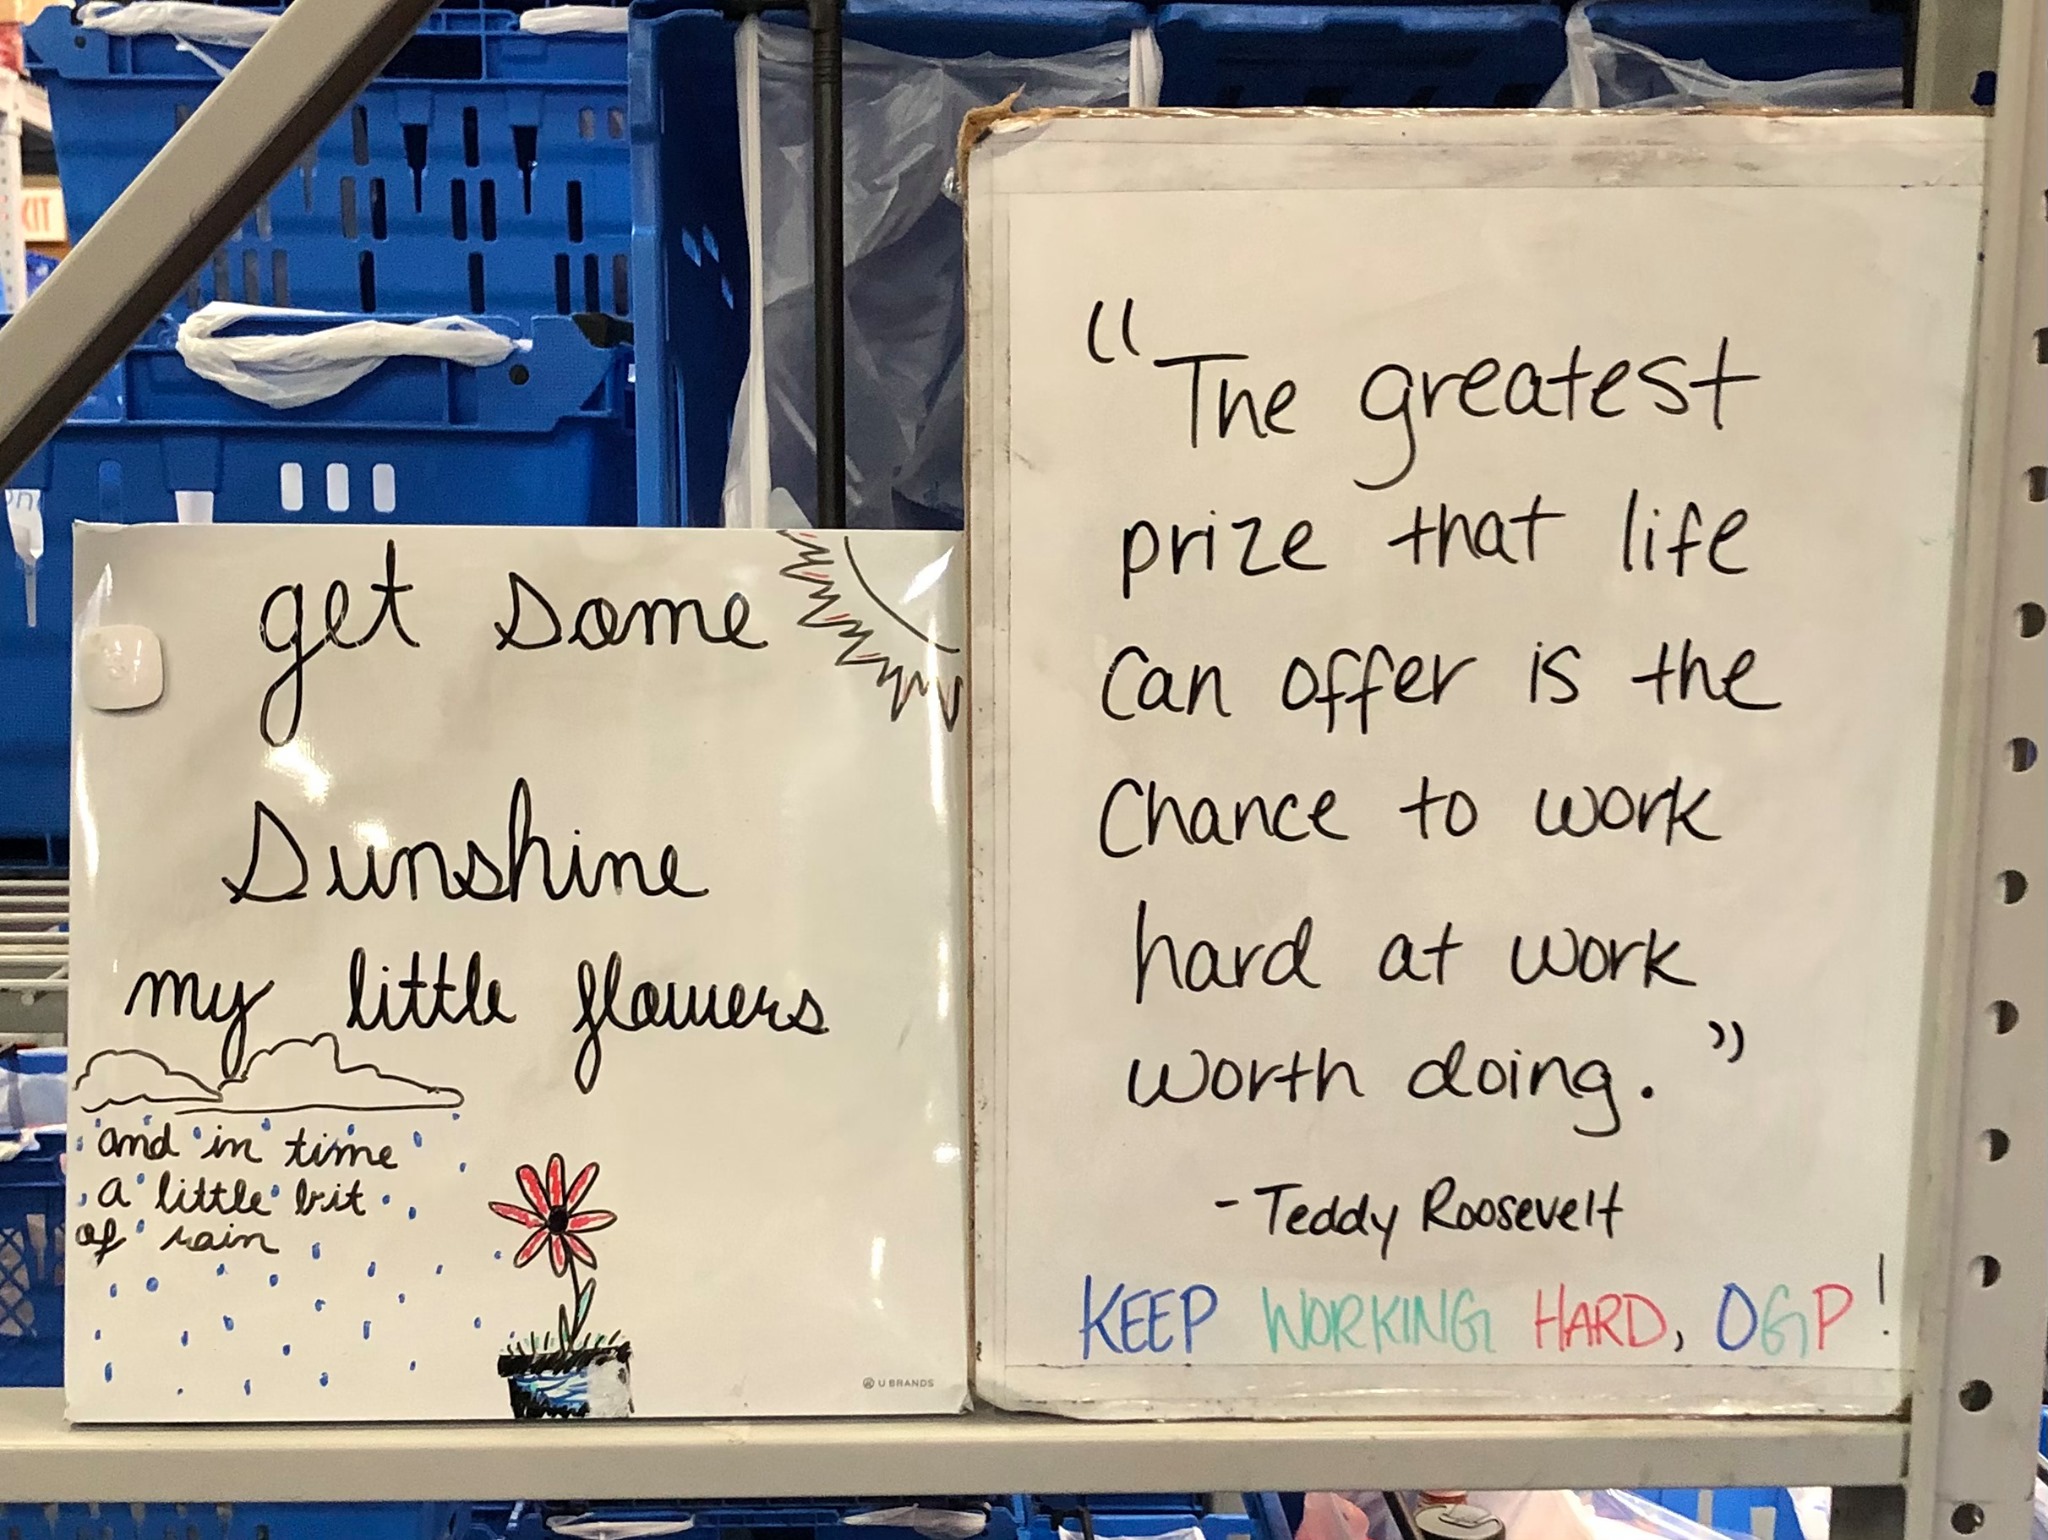 get some
Sunshine
my little flowers
and in time
a little bit
of rain
U BRANDS
"The greatest
prize that life
can offer is the
Chance to work
hard at work
worth doing."
- Teddy Roosevelt
KEEP WORKING HARD, OGP!
XIT